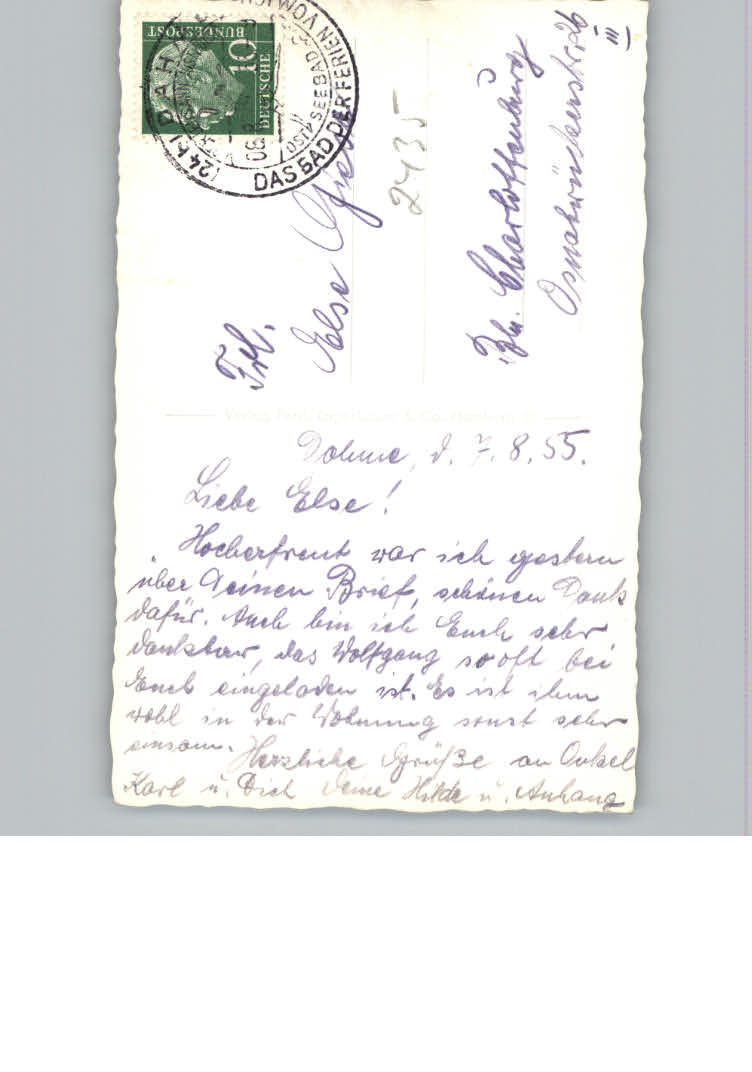 DEUTSCHE
BUNDESPOST
10
(24b) DAH
DAS BAD DER FERIEN VOM
SEEBAD
Frl.
Else
2435
Bln. Charlottenburg
Osnabrückerstr. 26
III
Dahme, d. 7.8.55.
Liebe Else!
Hocherfreut war ich gestern
über Deinen Brief, schönen Dank
dafür. Auch bin ich Euch sehr
dankbar, das Wolfgang so oft bei
Euch eingeladen ist. Es ist ihm
wohl in der Wohnung sonst sehr
einsam. Herzliche Grüße an Onkel
Karl u. Dich Deine Hilde u. Anhang